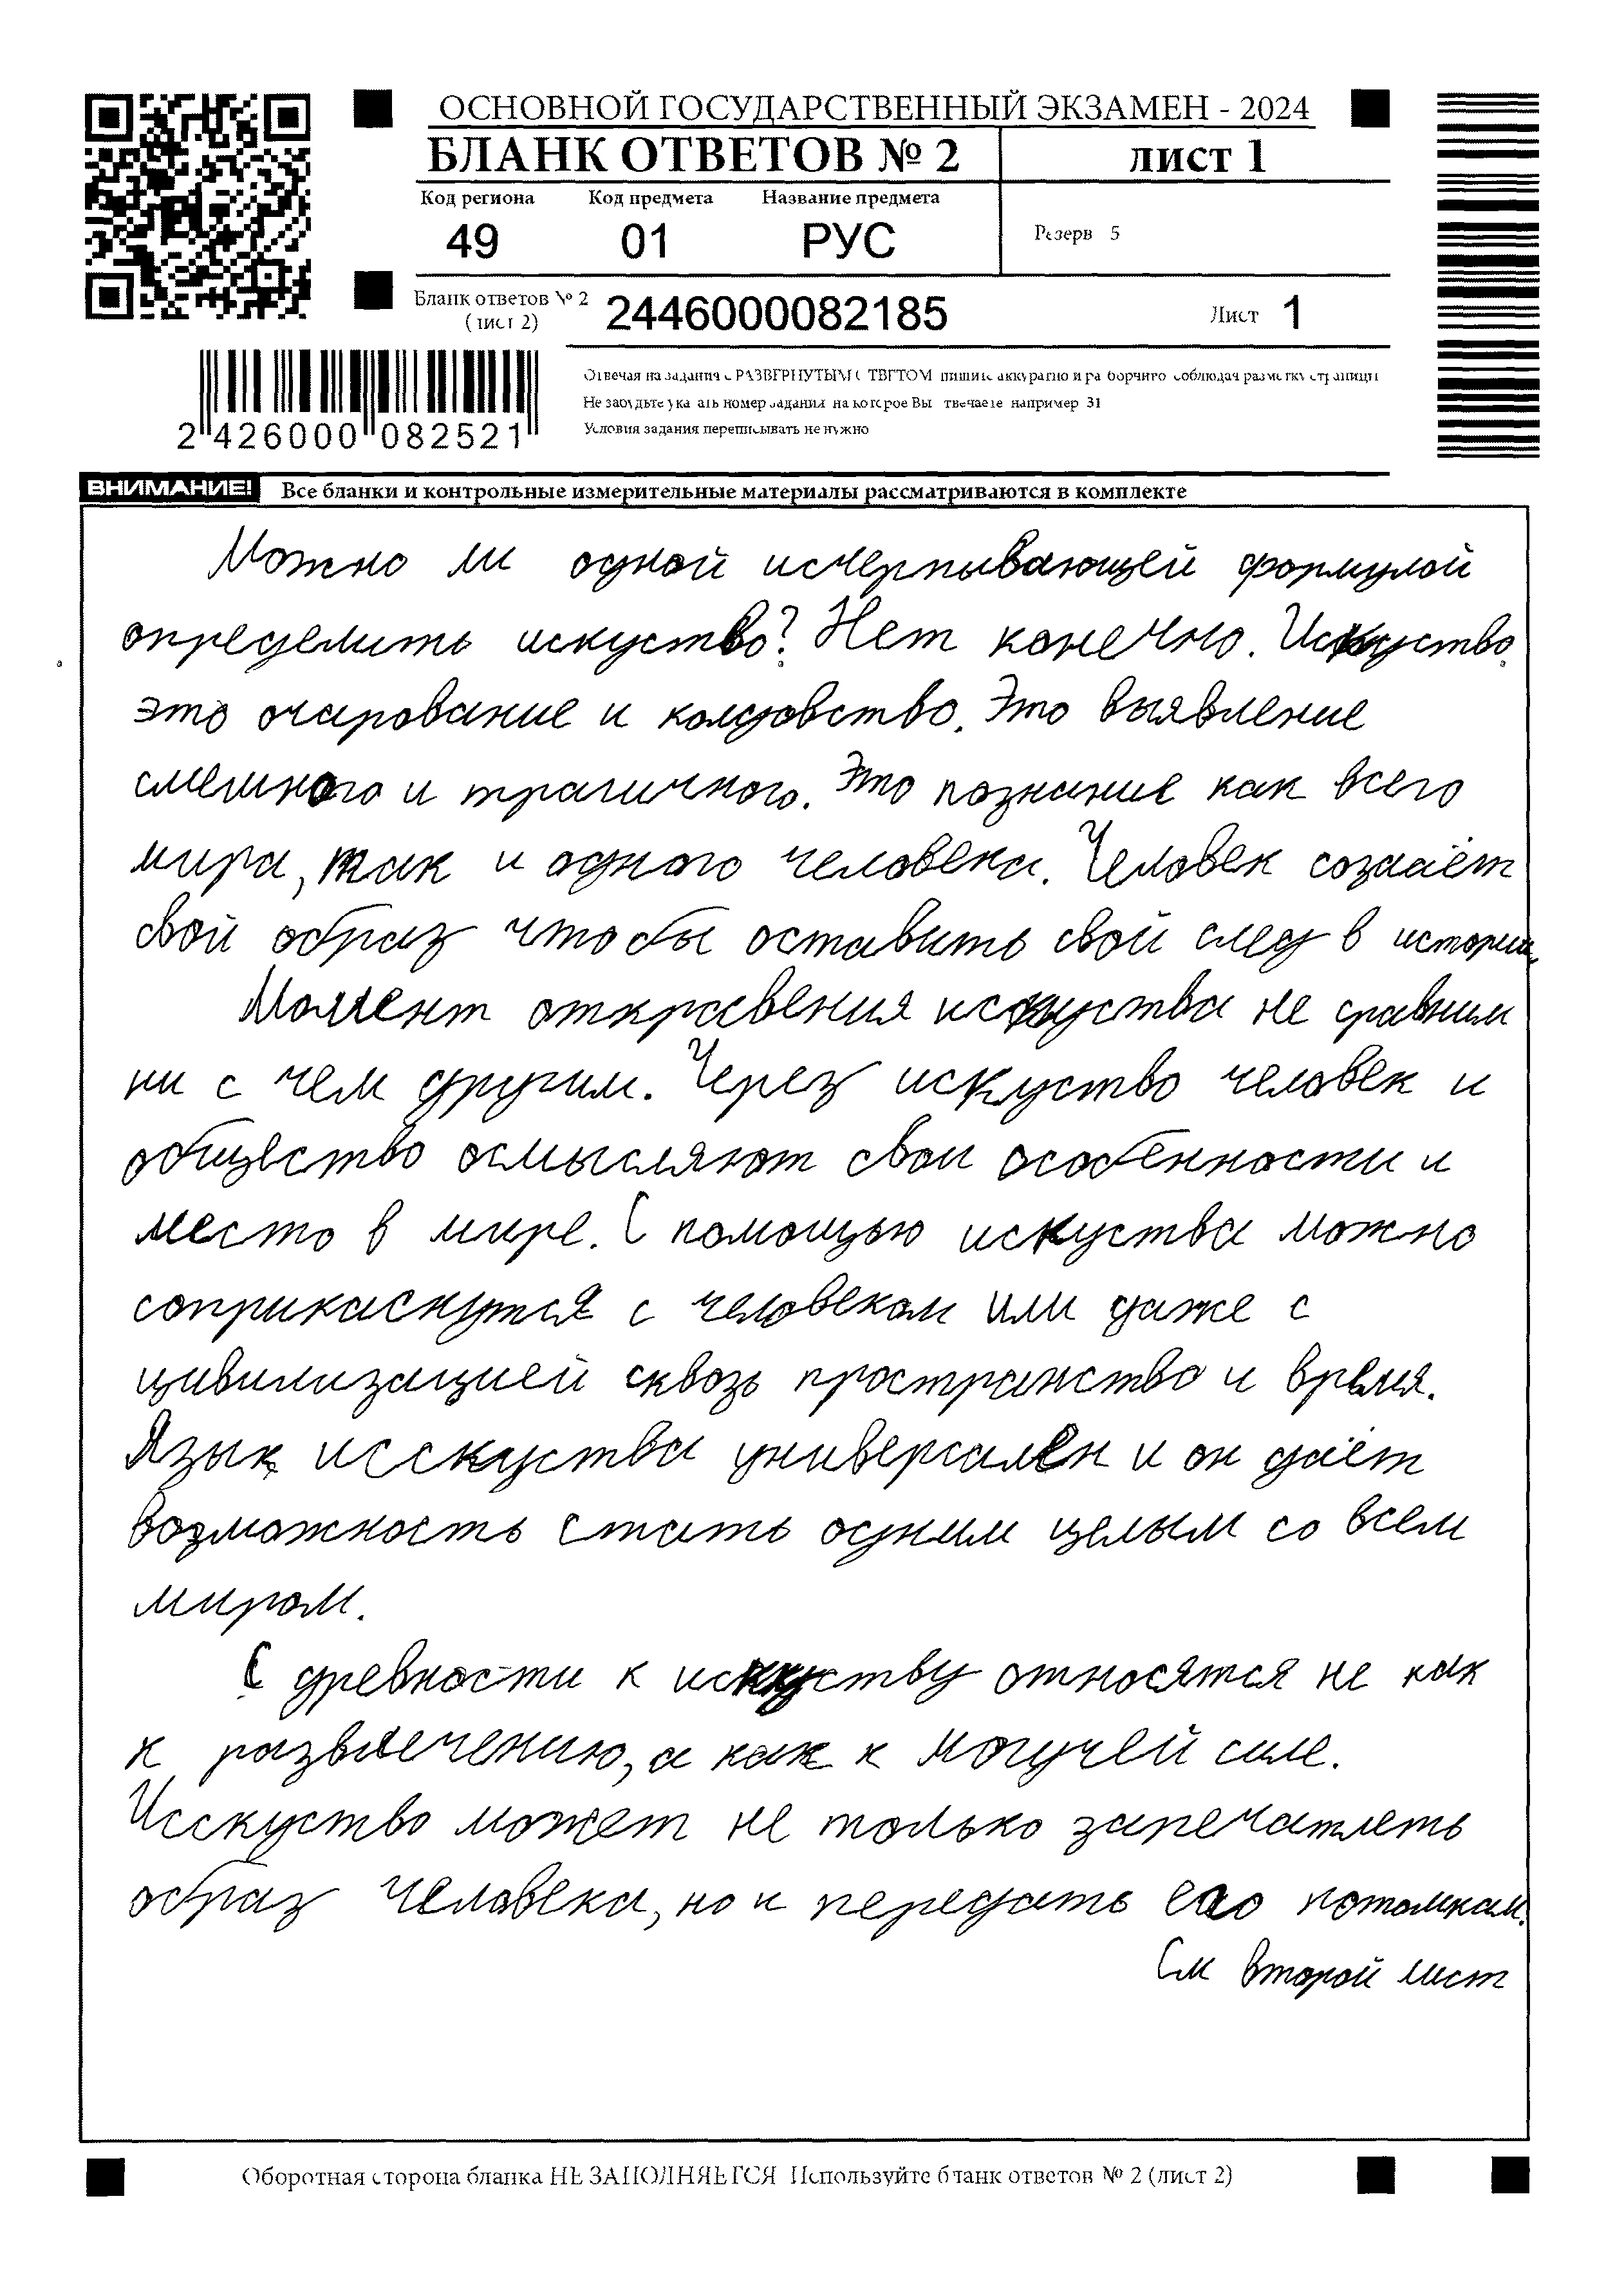 ОСНОВНОЙ ГОСУДАРСТВЕННЫЙ ЭКЗАМЕН - 2024
БЛАНК ОТВЕТОВ № 2 лист 1
Код региона Код предмета Название предмета
49 01 РУС Резерв 5
Бланк ответов № 2 (лист 2) 2446000082185 Лист 1
Отвечая на задания с РАЗВЕРНУТЫМ ОТВЕТОМ пишите аккуратно и разборчиво соблюдая разметку страницы
Не забудьте указать номер задания на которое Вы отвечаете например 31
Условия задания переписывать не нужно
2 426000 082521
ВНИМАНИЕ! Все бланки и контрольные измерительные материалы рассматриваются в комплекте
Можно ли одной исчерпывающей формулой
определить искуство? Нет конечно. Искуство
это очарование и колдовство. Это выявление
смешного и трагичного. Это познание как всего
мира, так и одного человека. Человек создаёт
свой образ чтобы оставить свой след в истории.
Момент откравения искуства не сравним
ни с чем другим. Через искуство человек и
общество осмысляют свои особенности и
место в мире. С помощью искуства можно
соприкаснутся с человеком или даже с
цивилизацией сквозь пространство и время.
Язык исскуства универсален и он даёт
возможность стать одним целым со всем
миром.
С древности к искуству относятся не как
к развлечению, а как к могучей силе.
Исскуство может не только запечатлеть
образ человека, но и передать его потомкам.
См второй лист
Оборотная сторона бланка НЕ ЗАПОЛНЯЕТСЯ Используйте бланк ответов № 2 (лист 2)